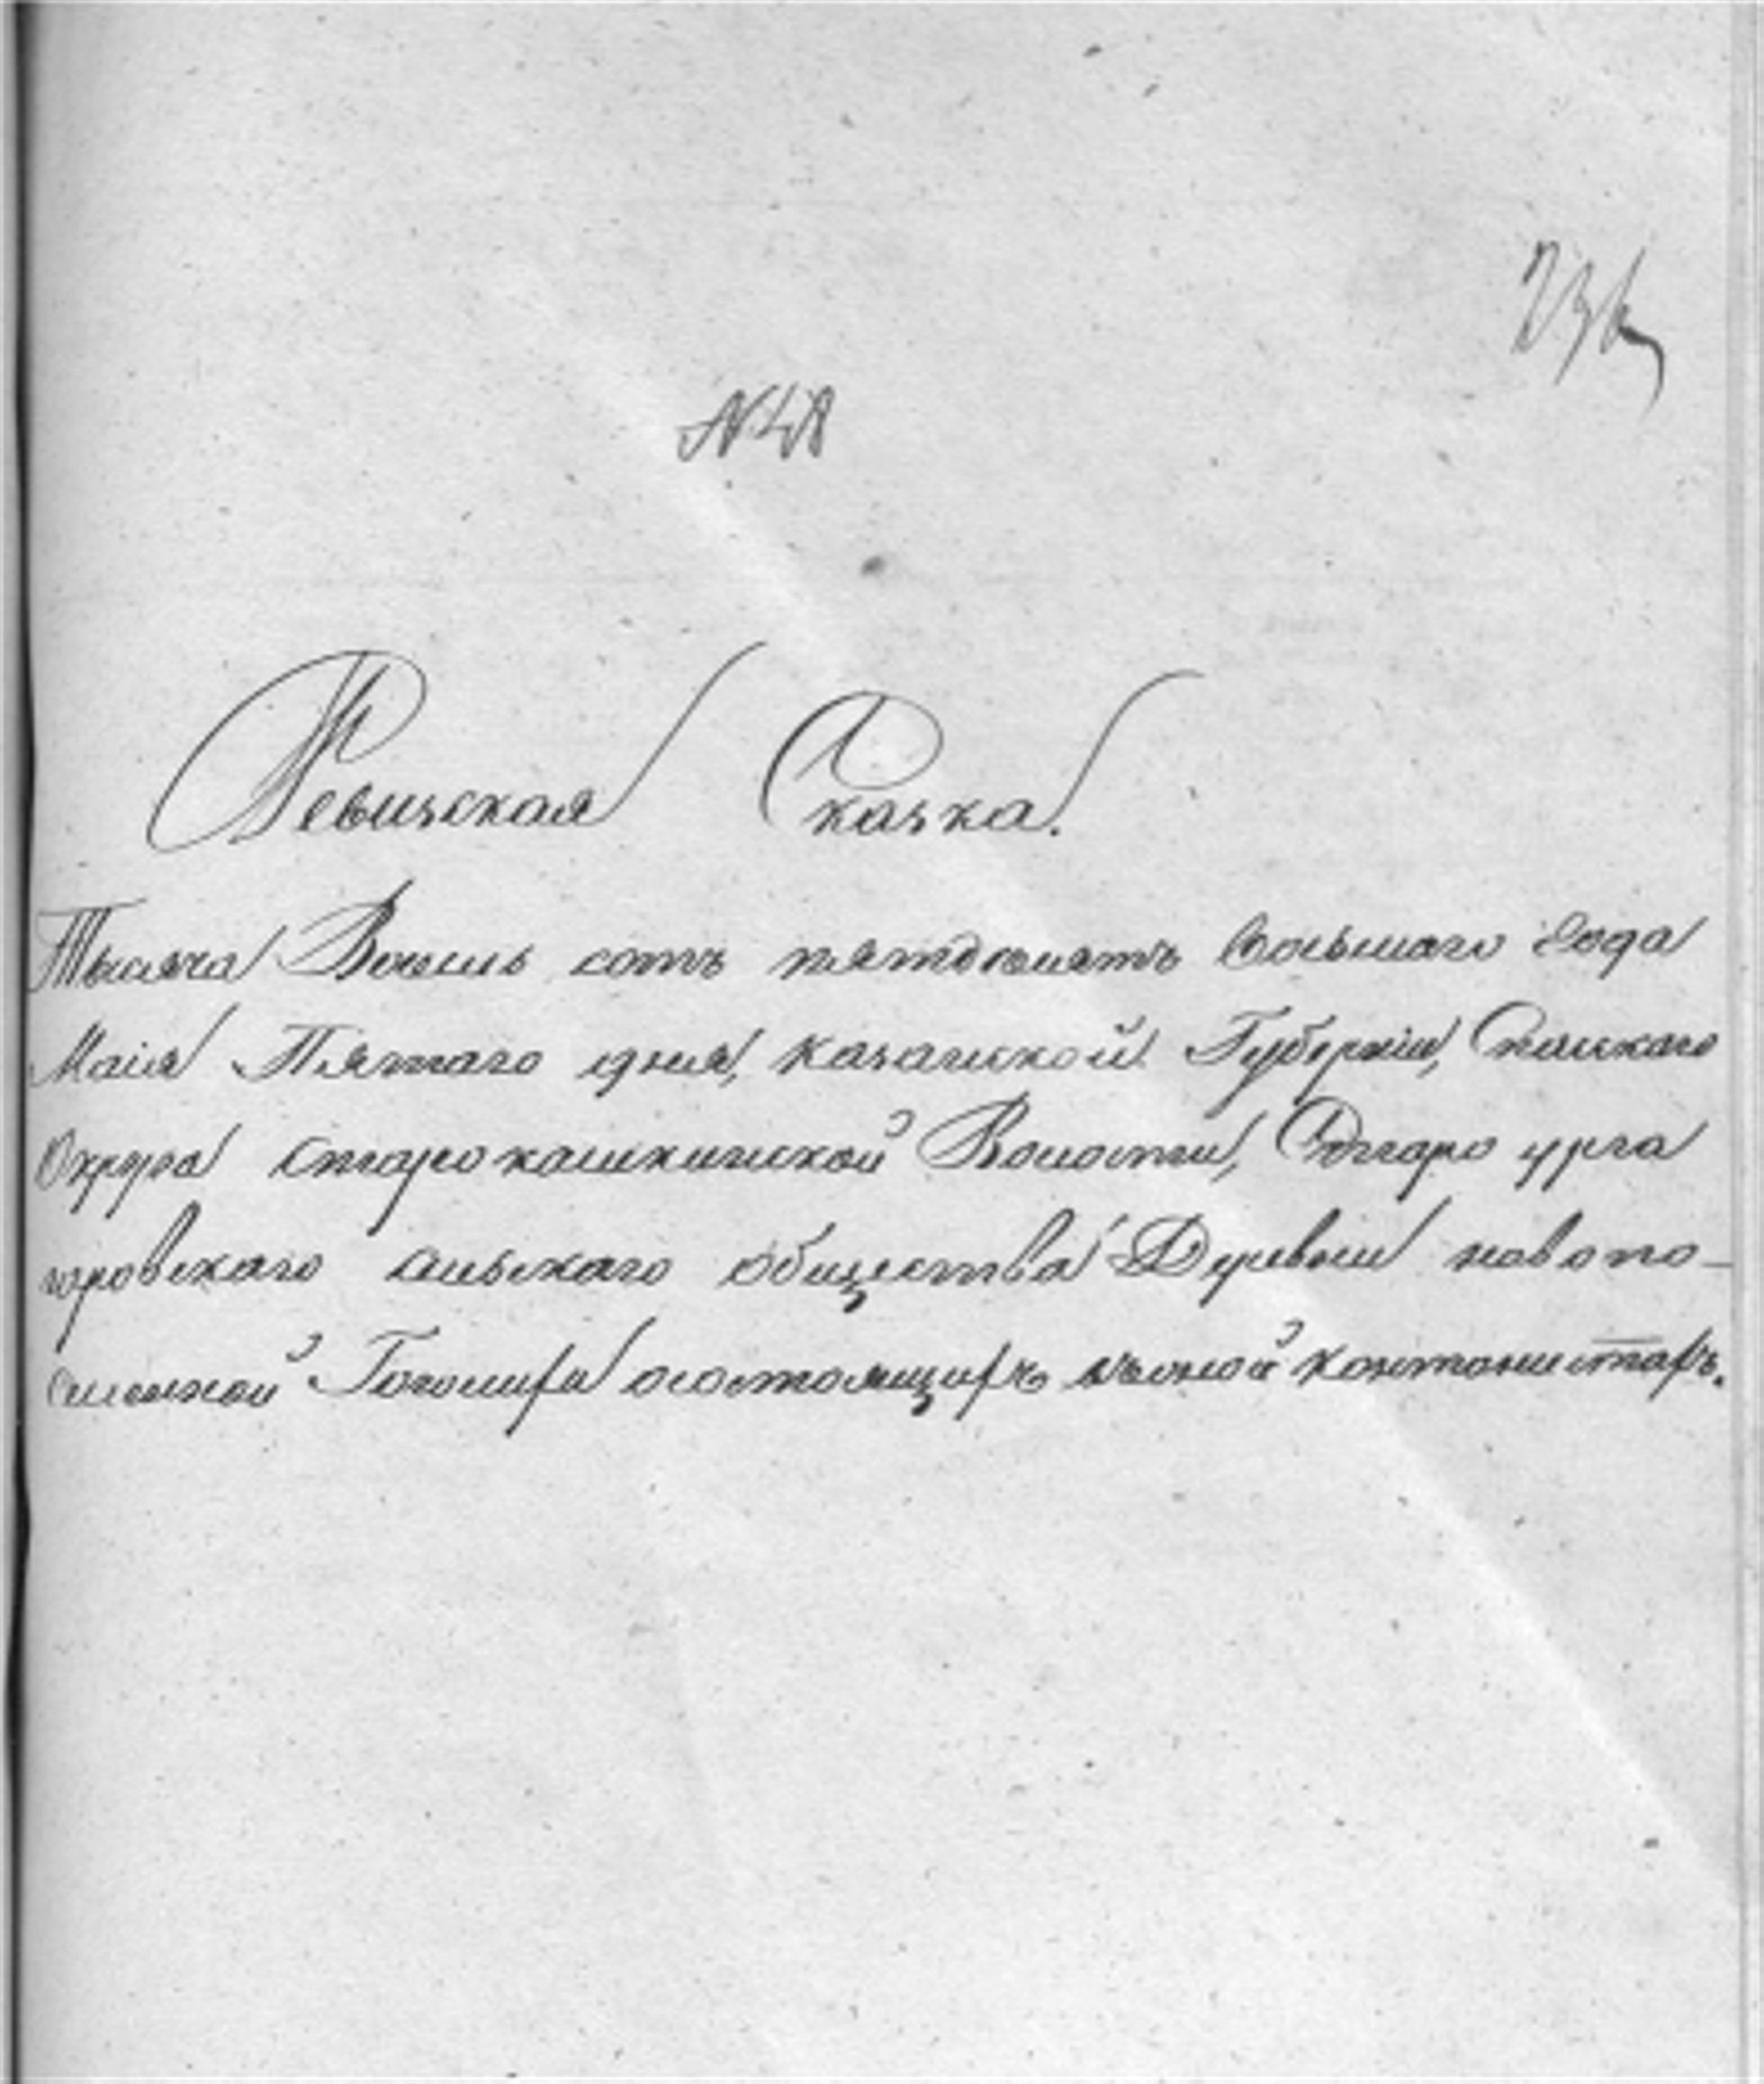 236
№48
Ревизская Сказка.
Тысяча Восемь сотъ пятдесятъ восьмаго года
Маія Пятаго дня, казанской Губерніи, Спаскаго
Округа старо кашкинской Волости, Старо урга
гаровскаго сельскаго общества Деревни ново по-
селенной Гоголихи о состоящихъ въ оной кантонистахъ.